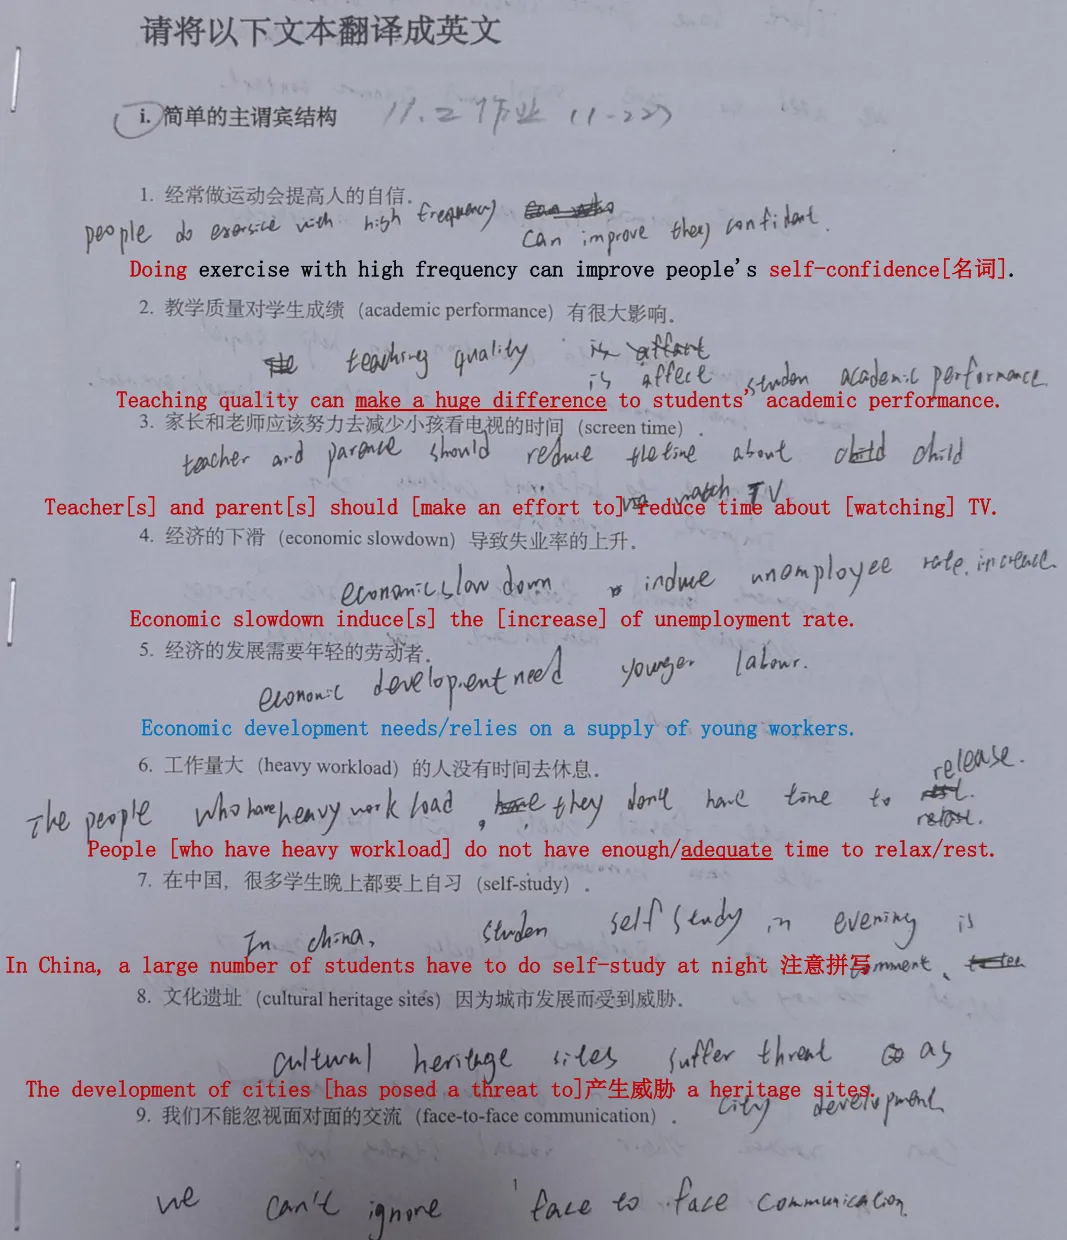 请将以下文本翻译成英文
i. 简单的主谓宾结构 11.2作业 (1-22)
1. 经常做运动会提高人的自信.
people do exersice with high frequency can improve they confident.
Doing exercise with high frequency can improve people's self-confidence[名词].
2. 教学质量对学生成绩（academic performance）有很大影响.
teaching quality is affect
is affect studen academic performance.
Teaching quality can make a huge difference to students' academic performance.
3. 家长和老师应该努力去减少小孩看电视的时间（screen time）.
teacher and parence should reduce the time about child
watch TV
Teacher[s] and parent[s] should [make an effort to] reduce time about [watching] TV.
4. 经济的下滑（economic slowdown）导致失业率的上升.
economic slow down induce unemployee rate increace
Economic slowdown induce[s] the [increase] of unemployment rate.
5. 经济的发展需要年轻的劳动者.
economic development need younger labour.
Economic development needs/relies on a supply of young workers.
6. 工作量大（heavy workload）的人没有时间去休息.
release.
The people who have heavy work load, they don't have time to
People [who have heavy workload] do not have enough/adequate time to relax/rest.
7. 在中国，很多学生晚上都要上自习（self-study）.
In china, studen self study in evening is
In China, a large number of students have to do self-study at night 注意拼写
8. 文化遗址（cultural heritage sites）因为城市发展而受到威胁.
cultural heritage sites suffer threat as
The development of cities [has posed a threat to]产生威胁 a heritage sites.
city development
9. 我们不能忽视面对面的交流（face-to-face communication）.
we can't ignore face to face communication
1